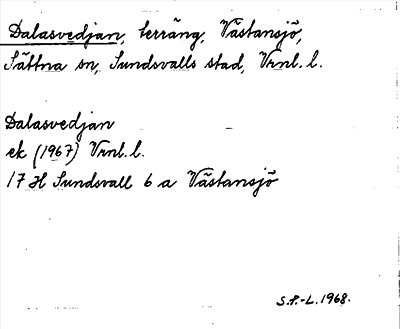 Dalasvedjan, terräng, Västansjö,
Sättna sn, Sundsvalls stad, Vrnl. l.
Dalasvedjan
ek (1967) Vrnl. l.
17 H Sundsvall 6 a Västansjö
S.P.-L. 1968.